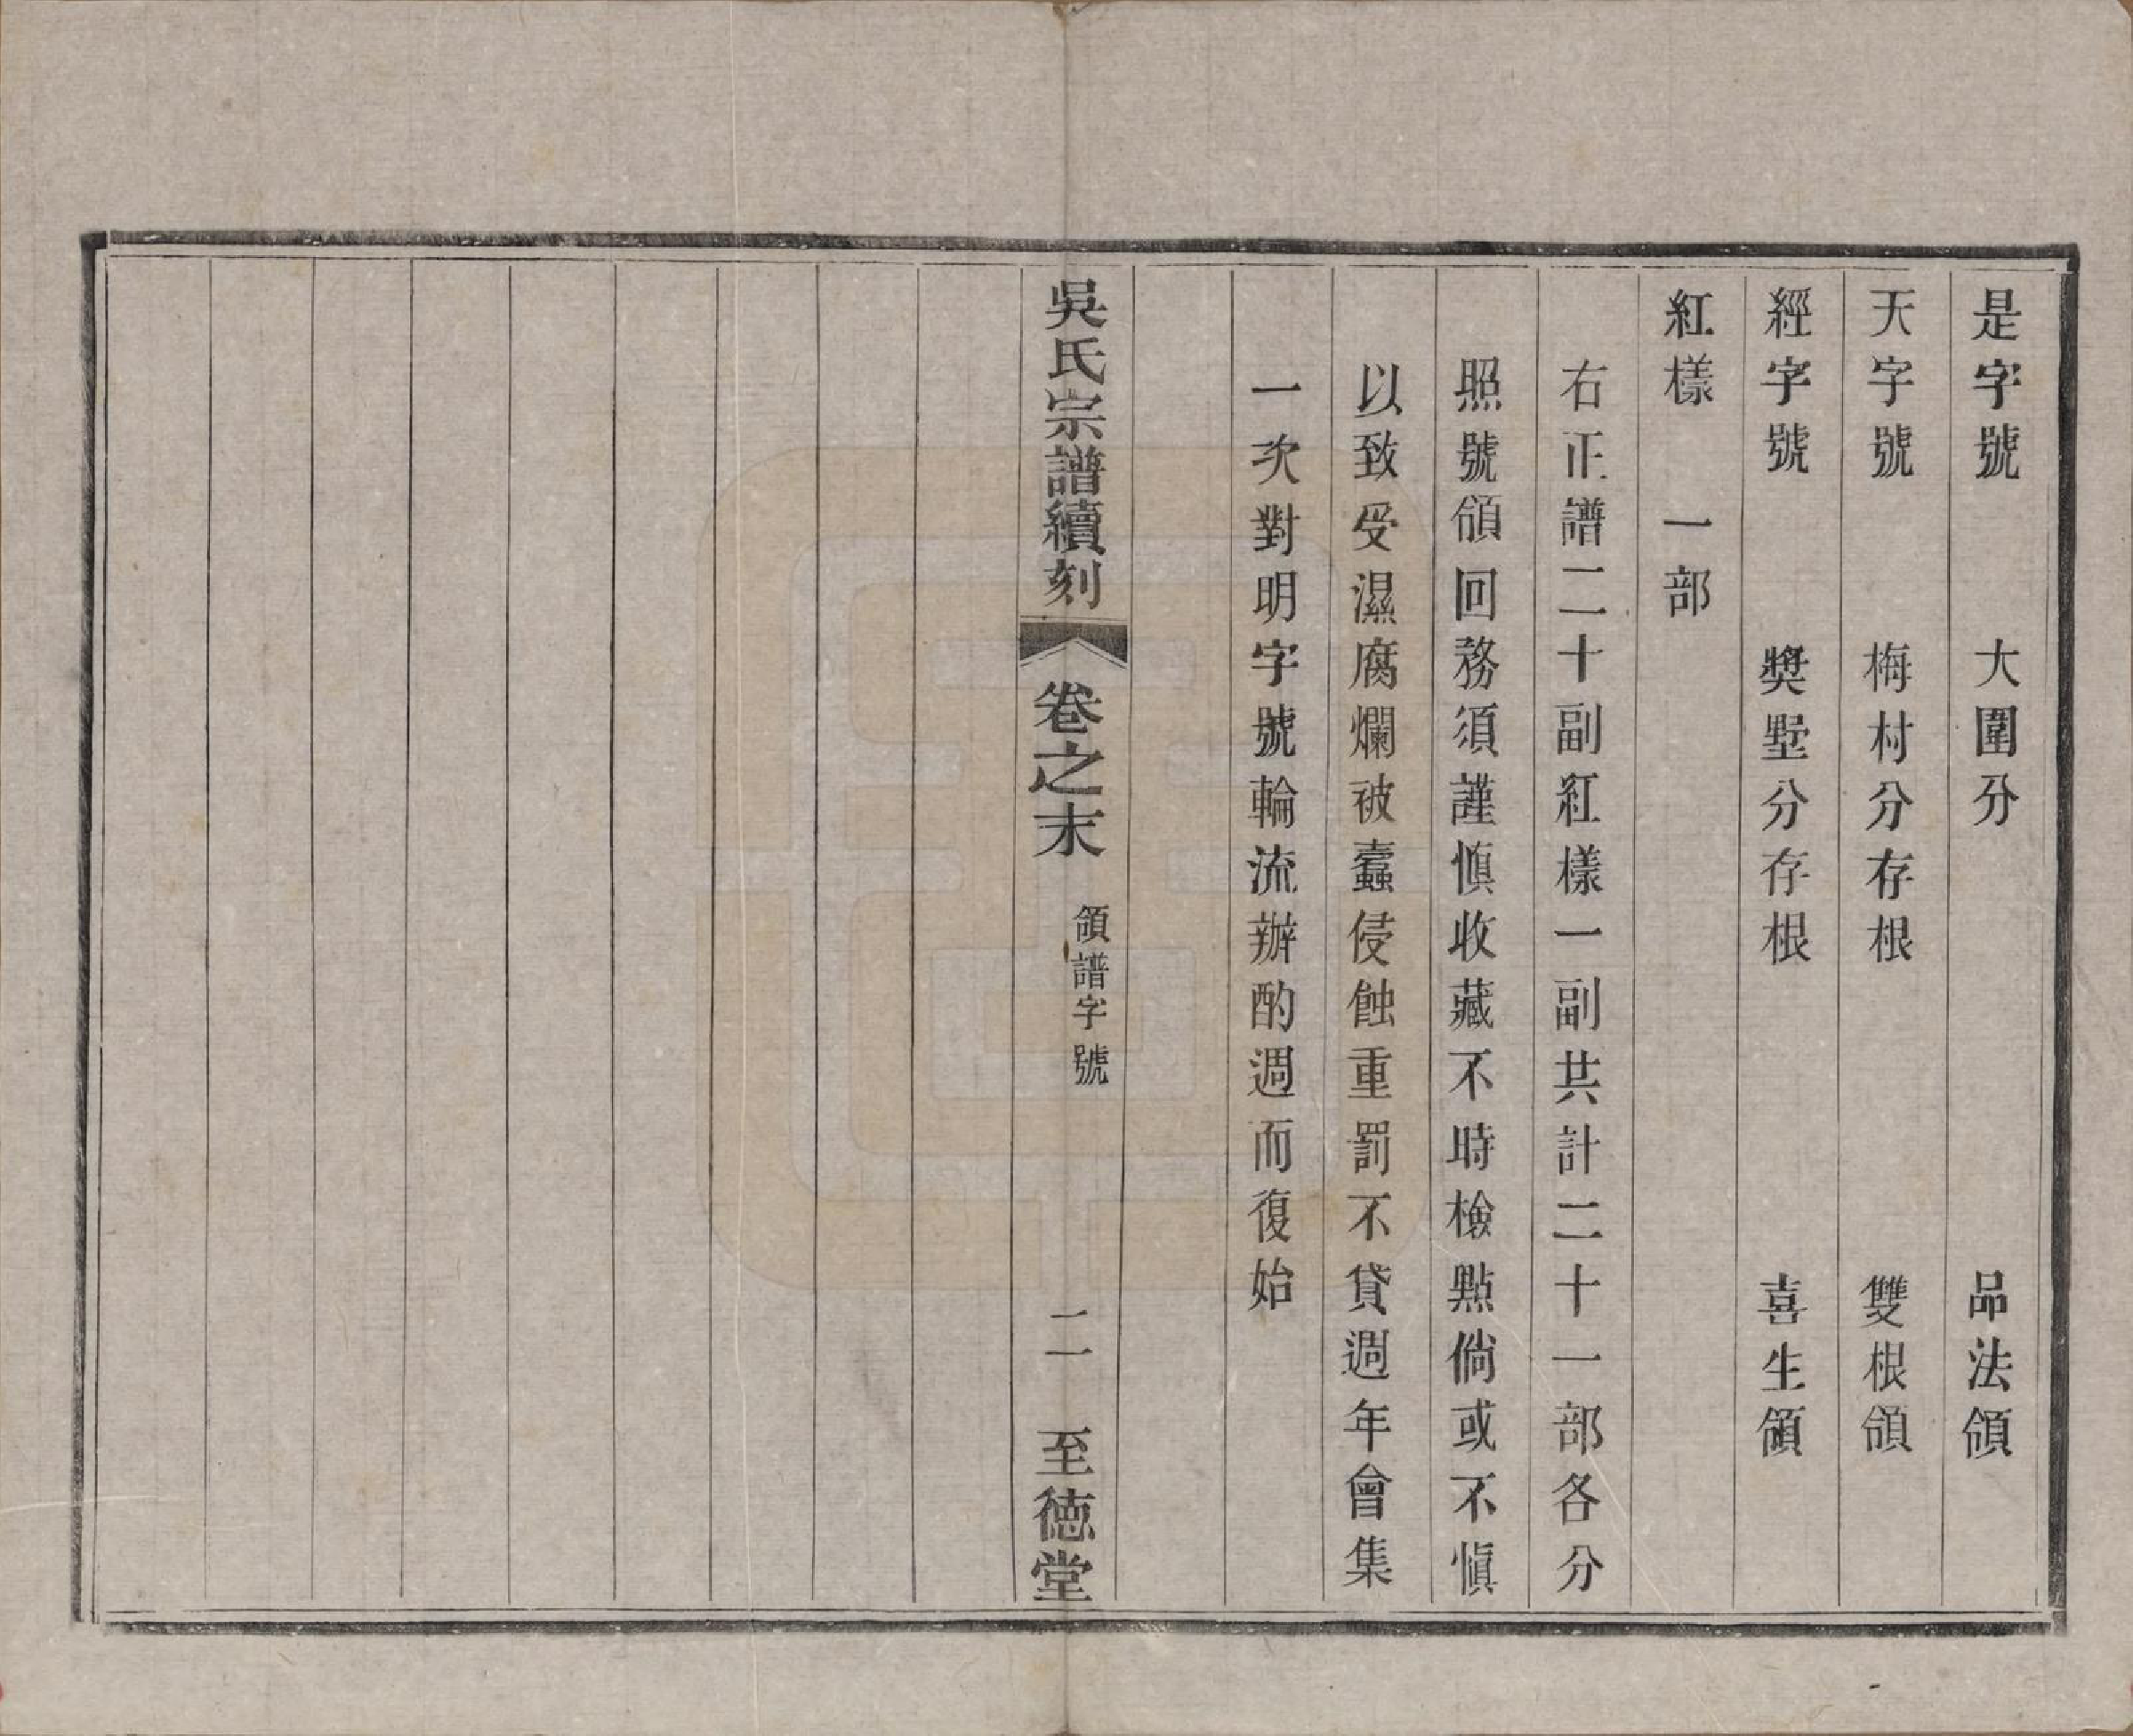 是字號 大圍分 品法領
天字號 梅村分存根 雙根領
經字號 獎墅分存根 喜生領
紅樣 一部
右正譜二十副紅樣一副共計二十一部各分
照號領回務須謹慎收藏不時檢點倘或不慎
以致受濕腐爛被蠹侵蝕重罰不貸週年會集
一次對明字號輪流辦酌週而復始
吳氏宗譜續刻 卷之末 領譜字號 二 至德堂